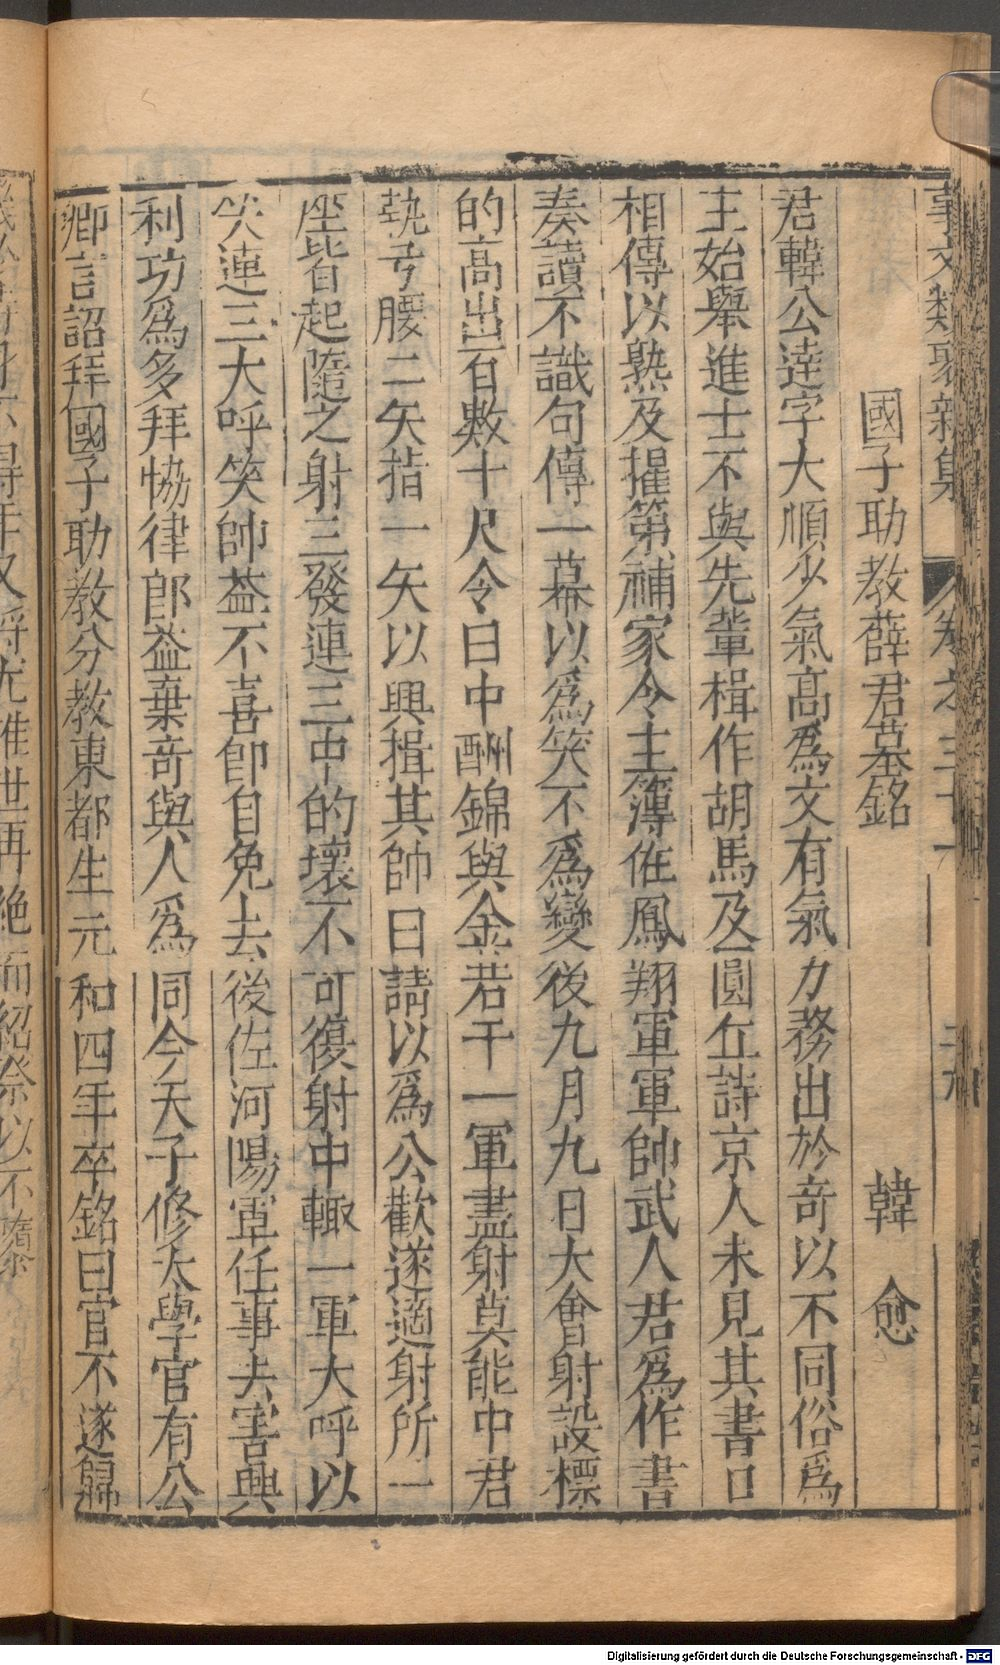 國子助教薛君墓銘 韓愈
君韓公達字大順少氣高爲文有氣力務出於奇以不同俗爲
主始舉進士不與先輩楫作胡馬及圓丘詩京人未見其書口
相傳以熟及擢第補家令主簿佐鳳翔軍軍帥武人君爲作書
奏讀不識句傳一幕以爲笑不爲變後九月九日大會射設標
的高出百數十尺令曰中酬錦與金若干一軍盡射莫能中君
執弓腰二矢指一矢以興揖其帥曰請以爲公歡遂適射所一
座皆起隨之射三發連三中的壞不可復射中輙一軍大呼以
笑連三大呼笑帥益不喜卽自免去後佐河陽軍任事去害興
利功爲多拜恊律郎益棄奇與人爲同今天子修太學官有公
卿言詔拜國子助教分教東都生元和四年卒銘曰官不遂歸
Digitalisierung gefördert durch die Deutsche Forschungsgemeinschaft - DFG